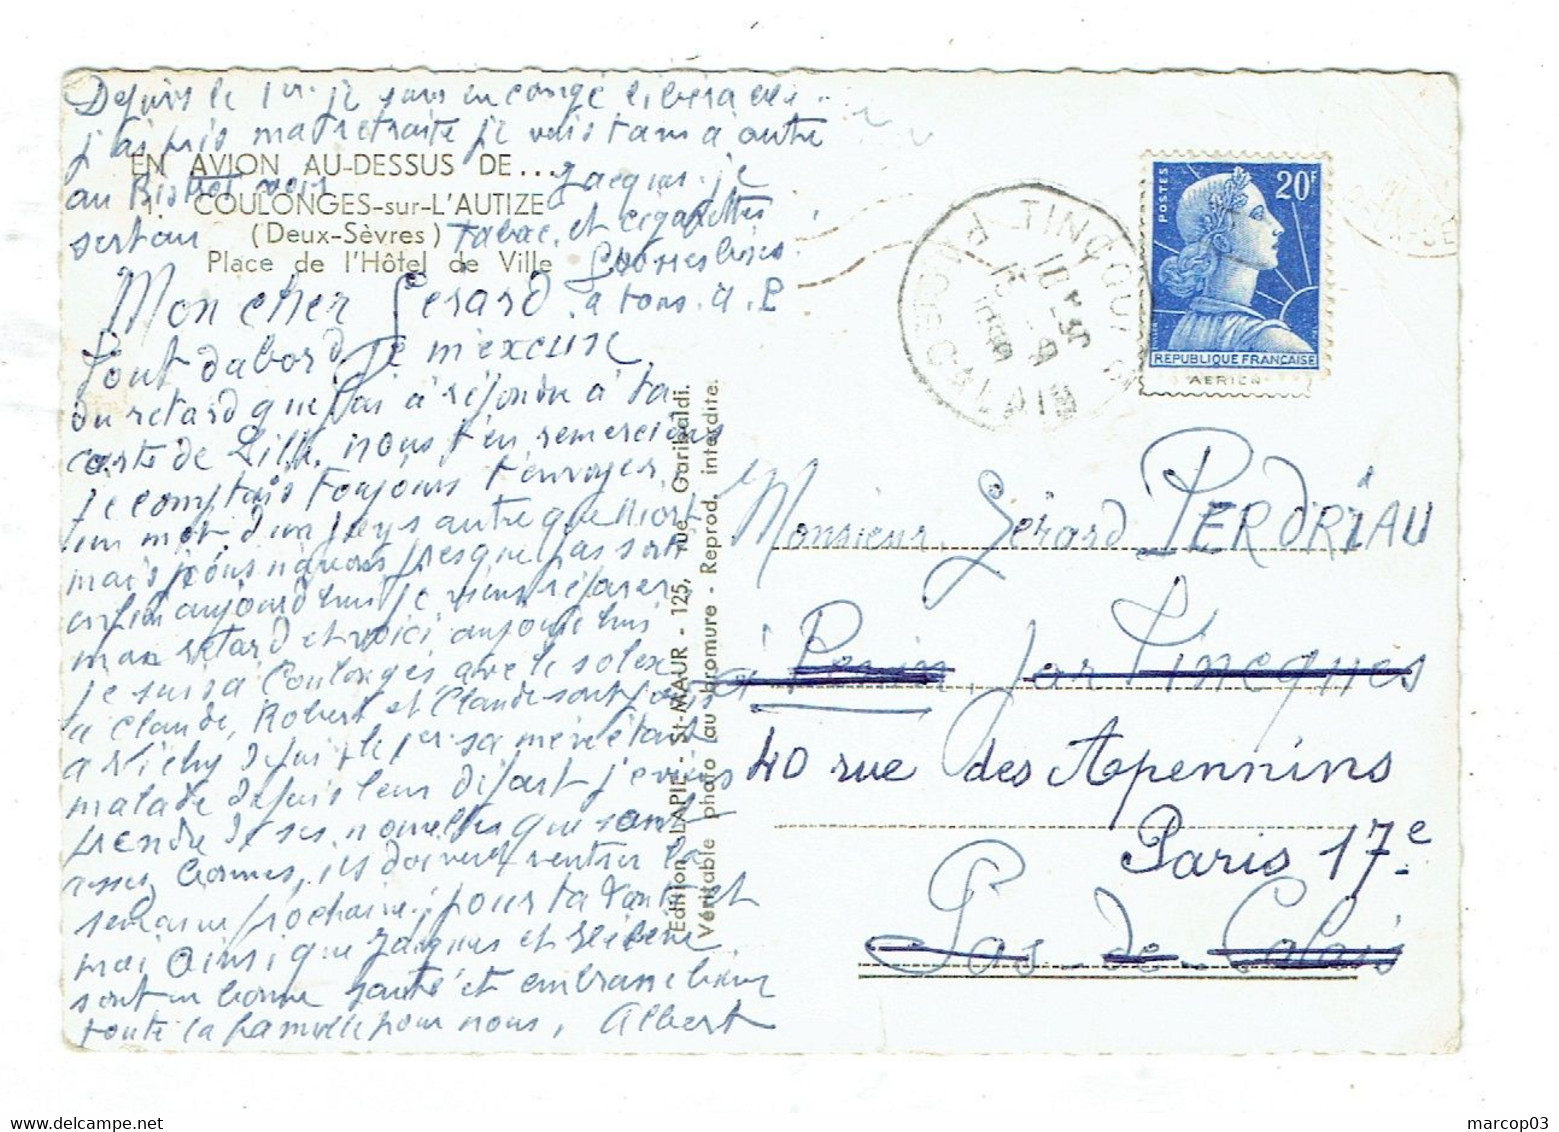 Depuis le 1er je suis en congé libérable
j'ai pris ma retraite je vais tam à autre
EN AVION AU-DESSUS DE...
Jacques. je
au Bistrot
1. COULONGES-sur-L'AUTIZE
sert au
tabac, et cigarettes
(Deux-Sèvres)
Place de l'Hôtel de Ville
Grosses bises
à tous. A. P
Mon cher Gerard.
Tout dabord Je m'excuse
du retard que j'ai à répondre à ta
carte de Lille, nous t'en remercions
je comptais toujours t'envoyer
un mot d'un pays autre que Niort
mais nous n'avons presque pas sorti
enfin aujourd'hui je viens réparer
mon retard et voici aujourd'hui
je suis à Coulonges avec le solex
à Claude, Robert et Claude sont
à Vichy depuis le 1er sa mère étant
malade depuis leur départ je viens
prendre de ses nouvelles que sont
assez bonnes, ils doivent rentrer la
semaine prochaine; pour ta Tante et
moi ainsi que Jacques et
sont en bonne santé et embrasse bien
toute la famille pour nous, Albert
Edition LAPIE - St-MAUR - 125, rue Garibaldi.
Véritable photo au bromure - Reprod. interdite.
TINCQUES
PAS DE CALAIS
POSTES
20F
REPUBLIQUE FRANÇAISE
Monsieur, Gérard PERDRIAU
à Penin, par Tincques
40 rue des Apennins
Paris 17e
Pas-de-Calais
marcop03